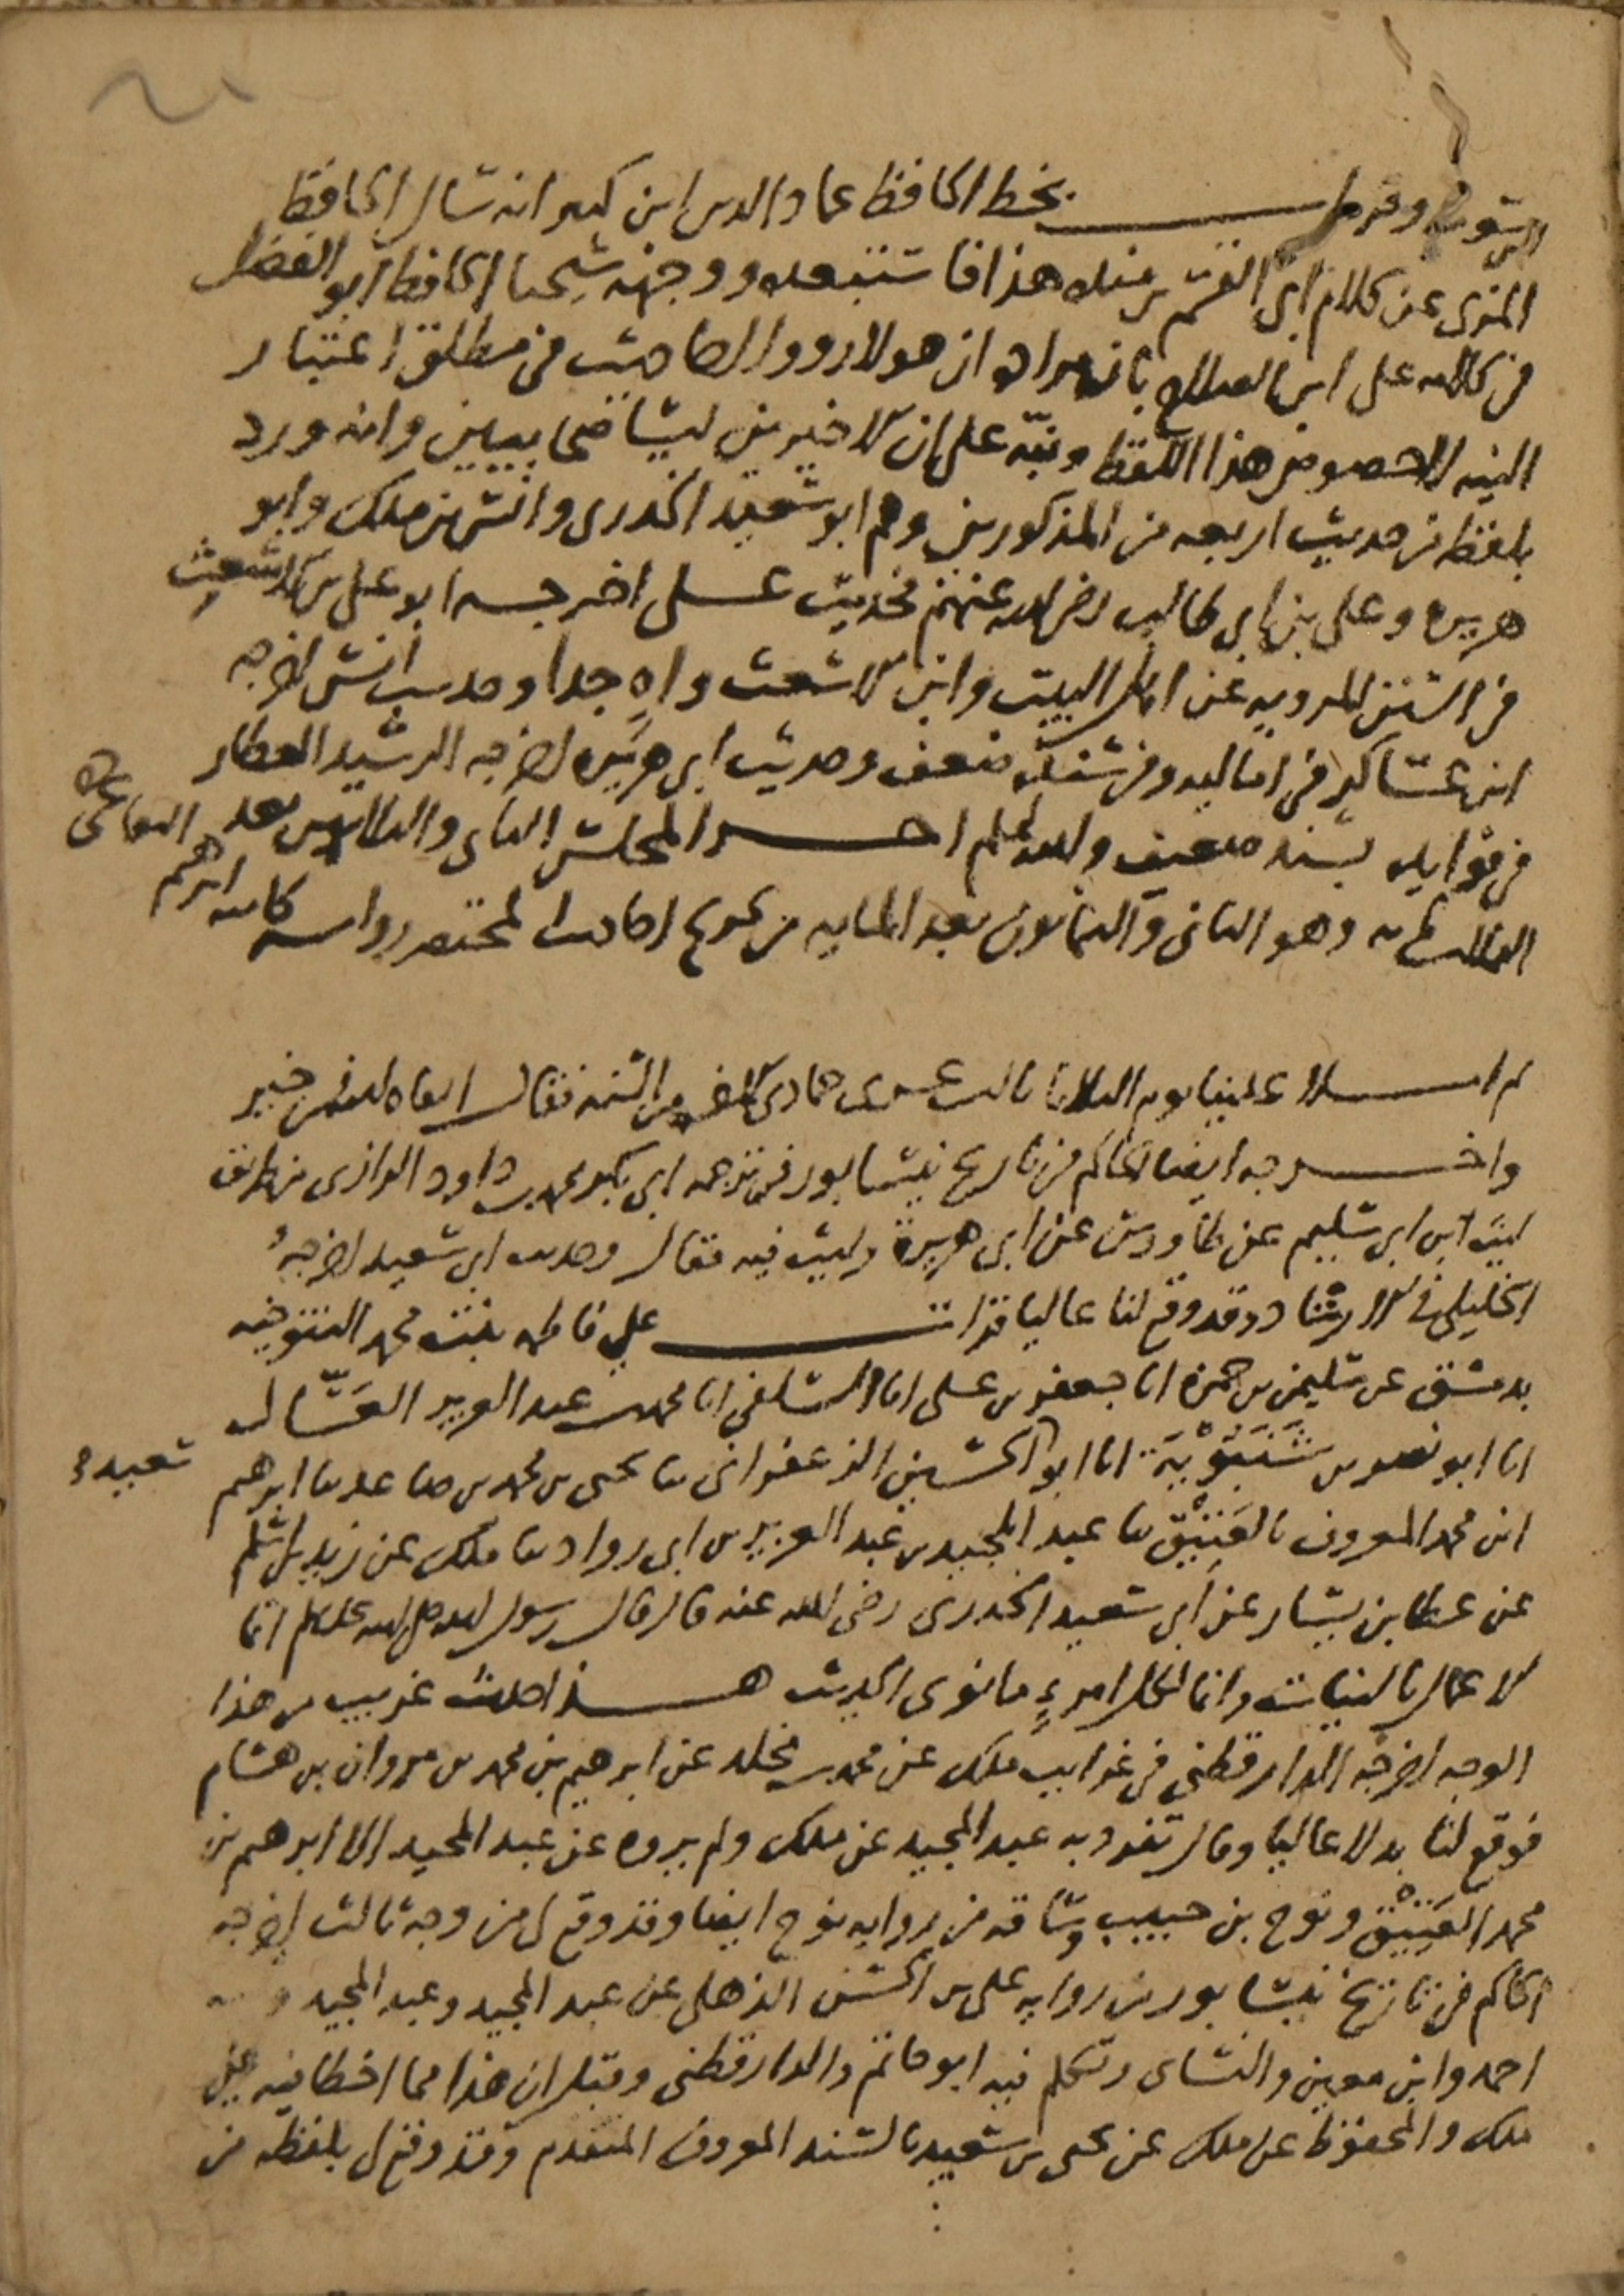 بخط الحافظ عماد الدين ابن كثير انه سال الحافظ
المزي عن كلام ابي القسم بن منده هذا فاستبعده ووجهه شيخنا الحافظ ابو الفضل
في كلامه على ابن الصلاح بان مراده ان هولا رووا احاديث في مطلق اعتبار
النيه لا خصوص هذا اللفظ ونبه على ان الاخيرين ليسا صحابيين وانه ورد
بلفظه من حديث اربعه من المذكورين وهم ابو سعيد الخدري وانس بن ملك وابو
هريره وعلي بن ابي طالب رضي الله عنهم فحديث علي اخرجه ابو علي بن الاشعث
في السنن المرويه عن اهل البيت وابن الاشعث واهٍ جدا وحديث انس اخرجه
ابن عساكر في اماليه وفي سنده ضعف وحديث ابي هريره اخرجه الرشيد العطار
في فوايده بسند ضعيف والله اعلم اخر المجلس الثاني والثلاثين بعد
وهو الثاني والثمانون بعد المايه من تخريج احاديث المختصر روايه كاتبه ابرهيم
البقاعي
ثم املا علينا يوم الثلاثا ثالث عشري جمادي الاخره من السنه فقال ابقاه الله في خير
واخرجه ايضا الحاكم في تاريخ نيسابور في ترجمه ابي بكر محمد بن داود الرازي من طريق
ليث ابن ابي سليم عن طاووس عن ابي هريرة وليث فيه مقال وحديث ابي سعيد اخرجه
الخليلي في الارشاد وقد وقع لنا عاليا قرات علي فاطمه بنت محمد التنوخيه
بدمشق عن سليمن بن حمزه انا جعفر بن علي انا السلفي انا محمد بن عبد العزيز العسّال
انا ابو نصر بن شَنَبُوْيَة انا ابو الحسين الزعفراني ثنا يحيى بن محمد بن صاعد ثنا ابرهيم
ابن محمد المعروف بالعَتِيْق ثنا عبد المجيد بن عبد العزيز بن ابي رواد ثنا ملك عن زيد بن اسلم
عن عطا بن يسار عن ابي سعيد الخدري رضي الله عنه قال قال رسول الله صلى الله عليه وسلم انما
الاعمال بالنيات وانما لكل امرءٍ ما نوى الحديث هذا حديث غريب من هذا
الوجه اخرجه الدارقطني في غرايب ملك عن محمد بن مخلد عن ابرهيم بن محمد بن مروان بن هشام
فوقع لنا بدلا عاليا وقال تفرد به عبد المجيد عن ملك ولم يروه عن عبد المجيد الا ابرهيم بن
محمد العَتِيْق ونوح بن حبيب وساقه من روايه نوح ايضا وقد وقع لي من وجه ثالث اخرجه
الحاكم في تاريخ نيسابور من روايه علي بن الحسن الذهلي عن عبد المجيد وعبد المجيد
احمد وابن معين والنساى وتكلم فيه ابو حاتم والدارقطني وقيل ان هذا مما اخطا فيه على
ملك والمحفوظ عن ملك عن يحيى بن سعيد بالسند المعروف المتقدم وقد وقع لي بلفظه من